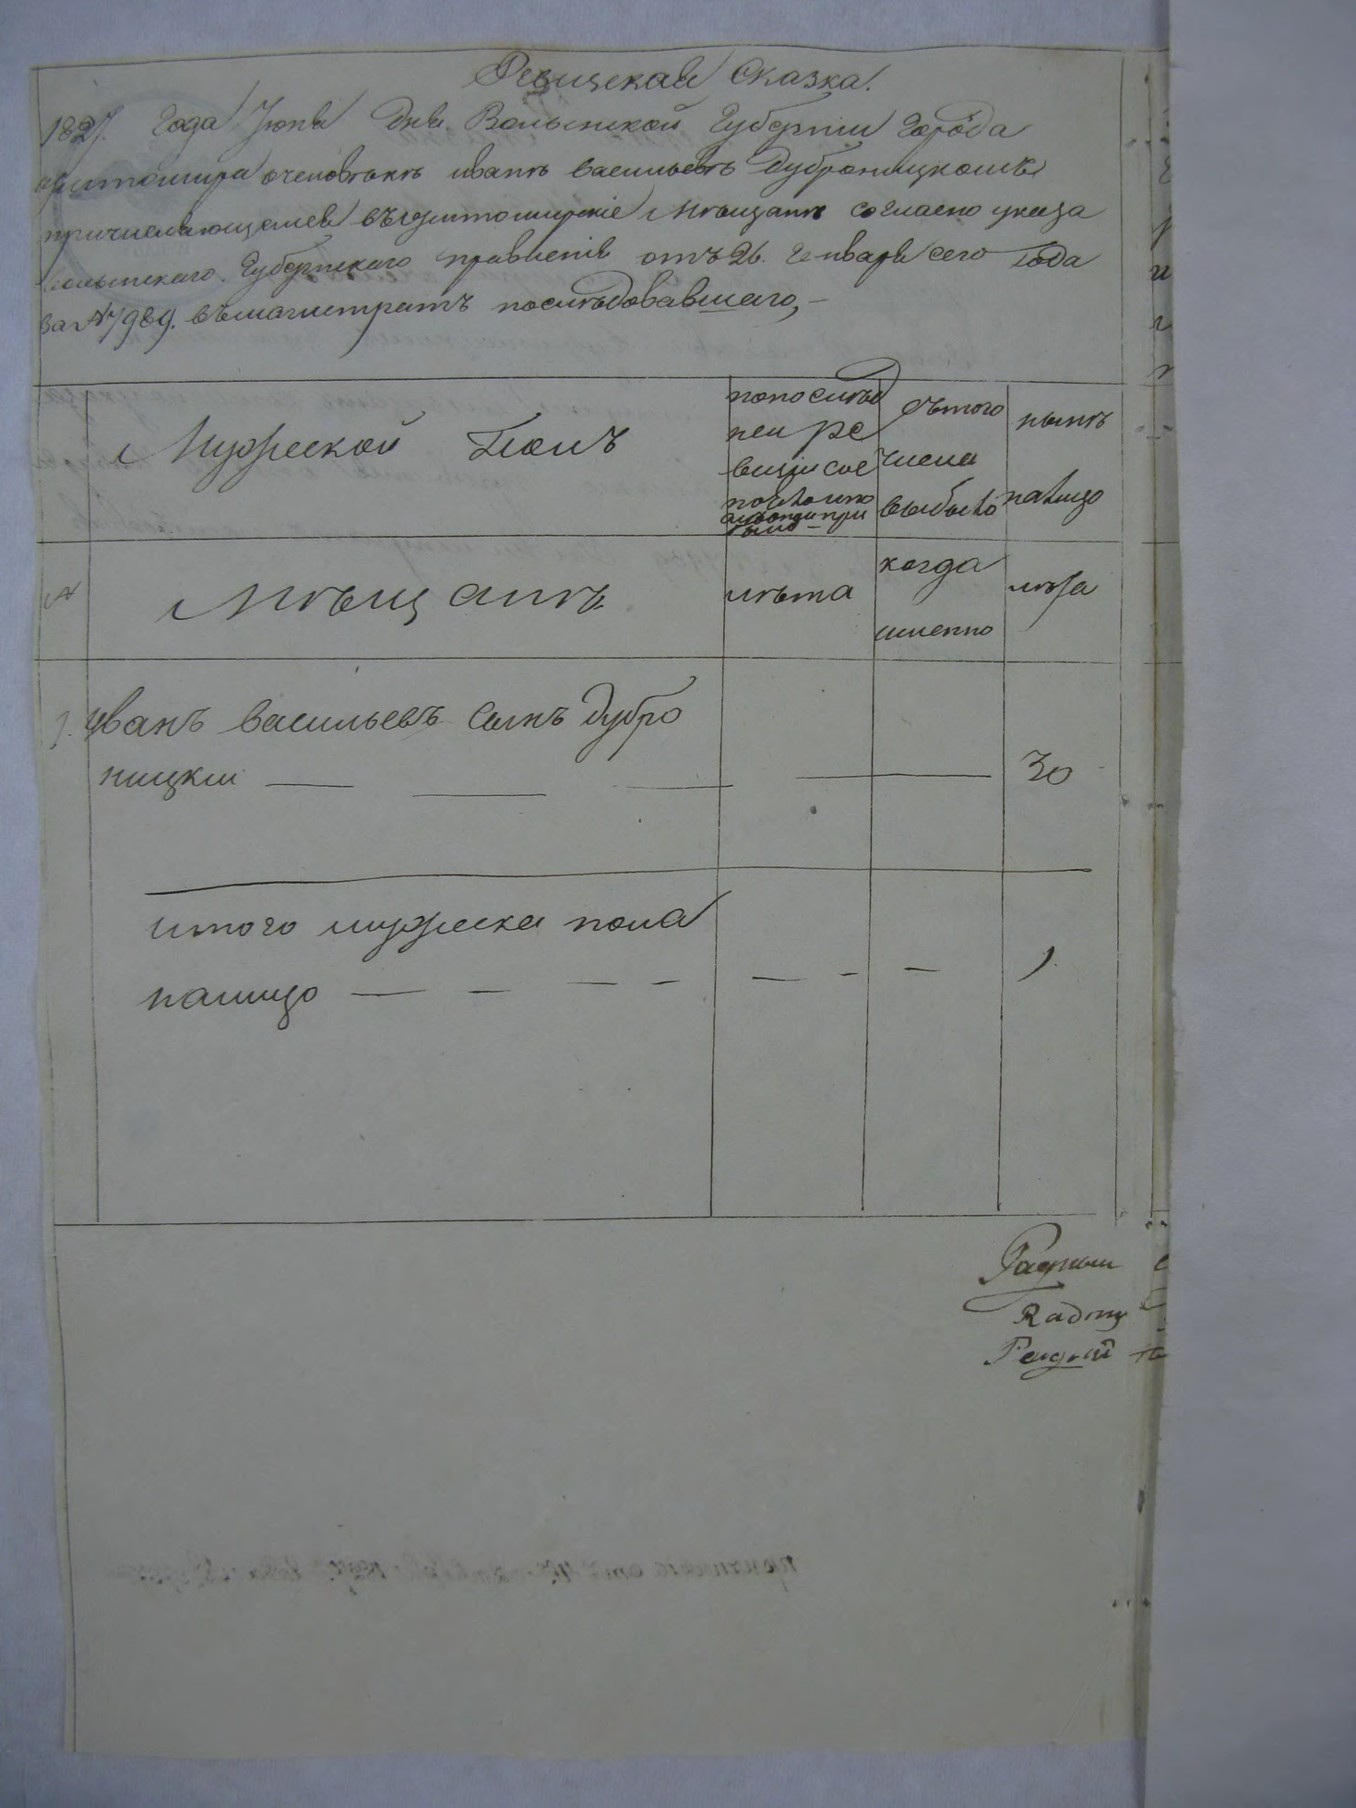 Ревизская Сказка.
1827. Года Июня дня Волынской Губернии Города
Житомира очеловѣкѣ иванѣ васильевѣ Дуброницкомъ
причисляющемся въжитомирские Мѣщане согласно указа
волынскаго Губернскаго правленія отъ 26. Генваря сего Года
за № 1989. въмагистратъ послѣдовавшаго,
Мужеской Полъ
попослѣд
ней ре
визіи сос
изтого
числа
выбыло
нынѣ
налицо
№
Мѣщанѣ
лѣта
когда
именно
лѣта
1. Иванъ васильевъ сынъ дубро
ницкий — — — — 30
итого мужеска пола
налицо — — — — — — — 1.
Радный
Radny
Радный